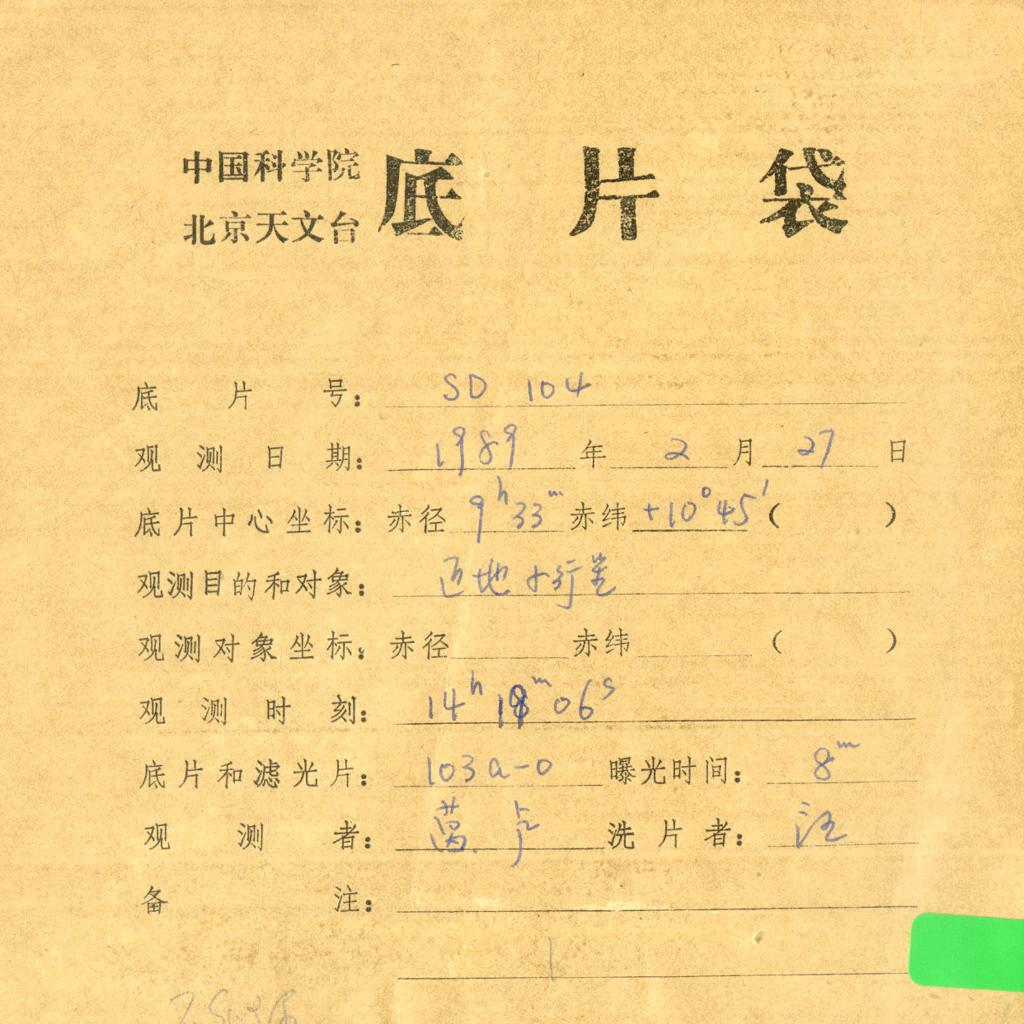 中国科学院
北京天文台
底片袋
底片号： SD 104
观测日期： 1989 年 2 月 27 日
底片中心坐标：赤径 9h 33m 赤纬 +10°45′ ( )
观测目的和对象： 近地小行星
观测对象坐标：赤径 赤纬 ( )
观测时刻： 14h m 06s
底片和滤光片： 103a-O 曝光时间： 8m
观测者： 卢 洗片者： 汪
备注：